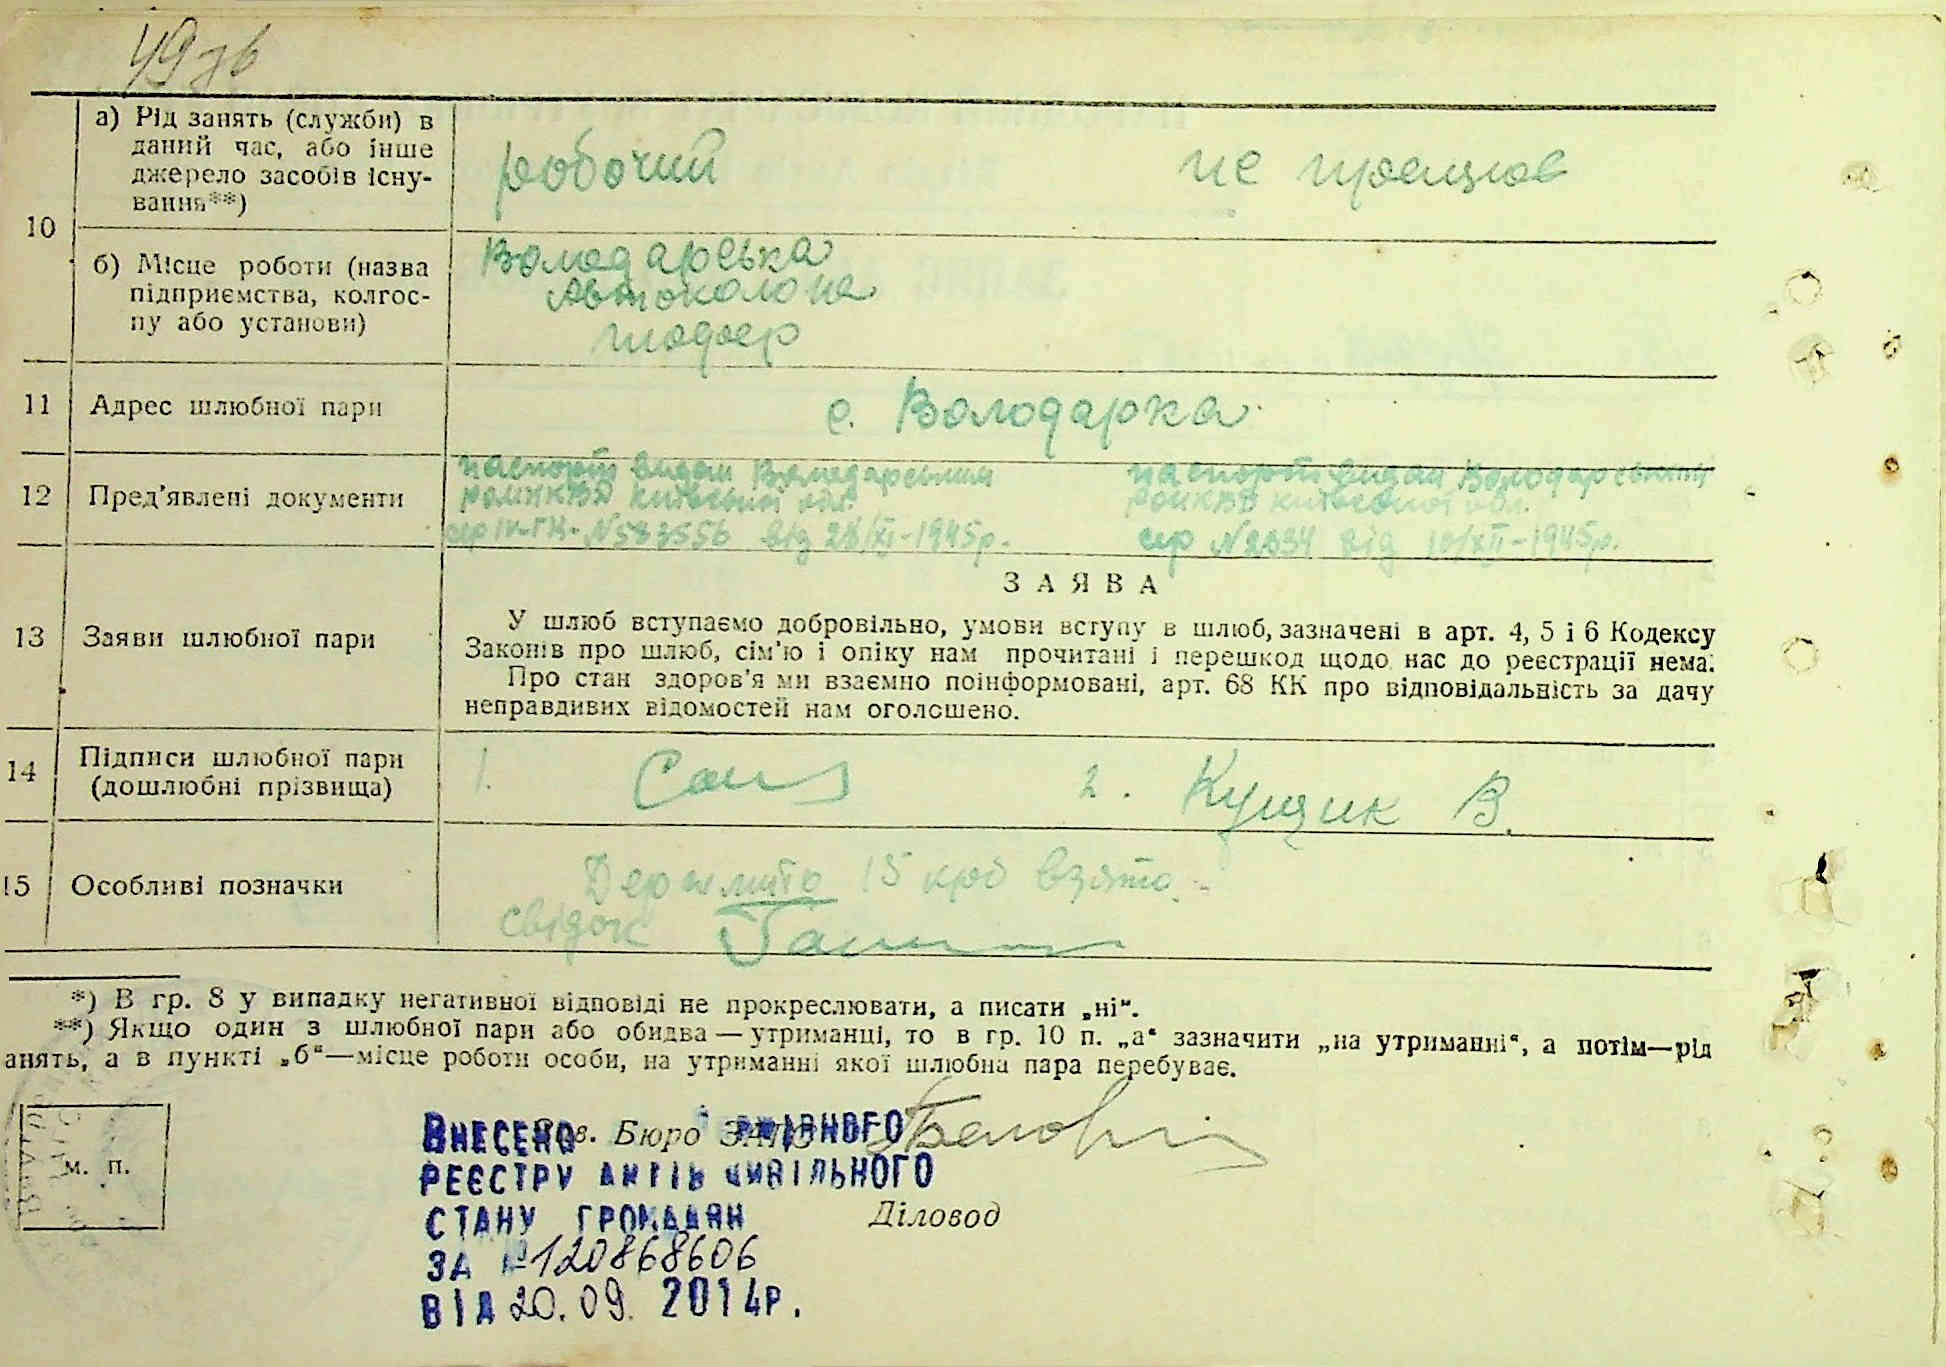 49 зв
10
а) Рід занять (служби) в
даний час, або інше
джерело засобів існу-
вання**)
робочий
не працює
б) Місце роботи (назва
підприємства, колгос-
пу або установи)
Володарська
Автоколона
шофер
11
Адрес шлюбної пари
с. Володарка
12
Пред'явлені документи
паспорт видан Володарським
райНКВД київської обл.
від 28/XI-1945р.
паспорт видан Володарським
райНКВД київської обл.
сер №2834 від 10/XII-1945р.
13
Заяви шлюбної пари
ЗАЯВА
У шлюб вступаємо добровільно, умови вступу в шлюб, зазначені в арт. 4, 5 і 6 Кодексу
Законів про шлюб, сім'ю і опіку нам прочитані і перешкод щодо нас до реєстрації нема.
Про стан здоров'я ми взаємно поінформовані, арт. 68 КК про відповідальність за дачу
неправдивих відомостей нам оголошено.
14
Підписи шлюбної пари
(дошлюбні прізвища)
1.
2. Кущик В.
15
Особливі позначки
Держмито 15 крб взято.
свідок
*) В гр. 8 у випадку негативної відповіді не прокреслювати, а писати „ні“.
**) Якщо один з шлюбної пари або обидва — утриманці, то в гр. 10 п. „а“ зазначити „на утриманні“, а потім—рід
анять, а в пункті „б“—місце роботи особи, на утриманні якої шлюбна пара перебуває.
м. п.
Зав. Бюро ЗАГС
Діловод
ВНЕСЕНО ДЕРЖАВНОГО
РЕЄСТРУ АКТІВ ЦИВІЛЬНОГО
СТАНУ ГРОМАДЯН
ЗА №120868606
ВІД 20.09. 2014р.